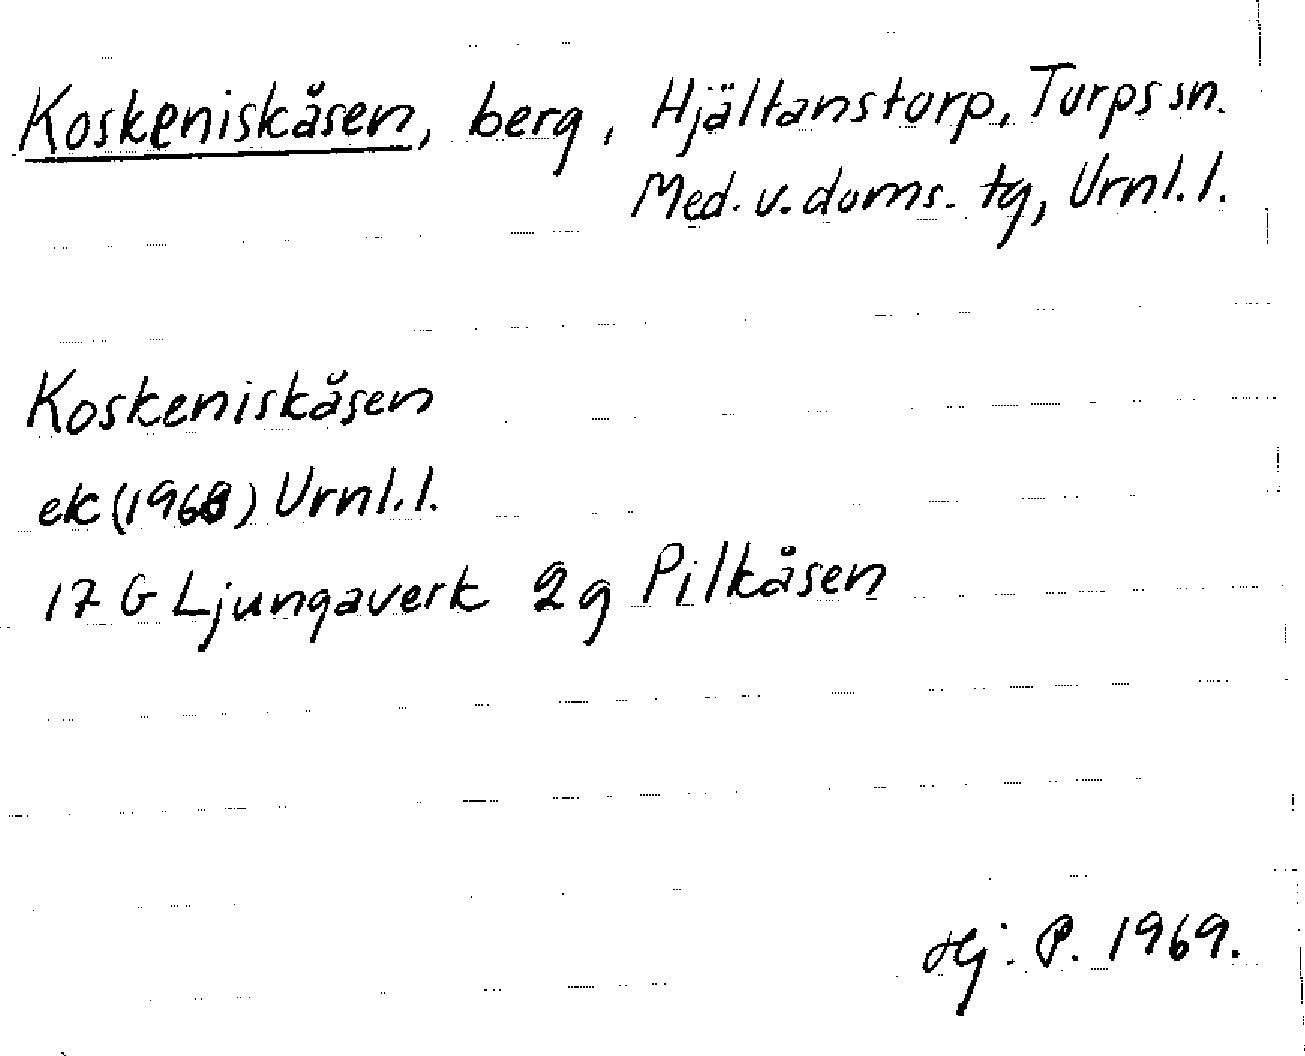 Koskeniskåsen, berg, Hjältanstorp, Torps sn.
Med. v. doms. tg, Vrnl. l.
Koskeniskåsen
ek (1968) Vrnl. l.
17 G Ljungaverk 2 g Pilkåsen
Hj. P. 1969.